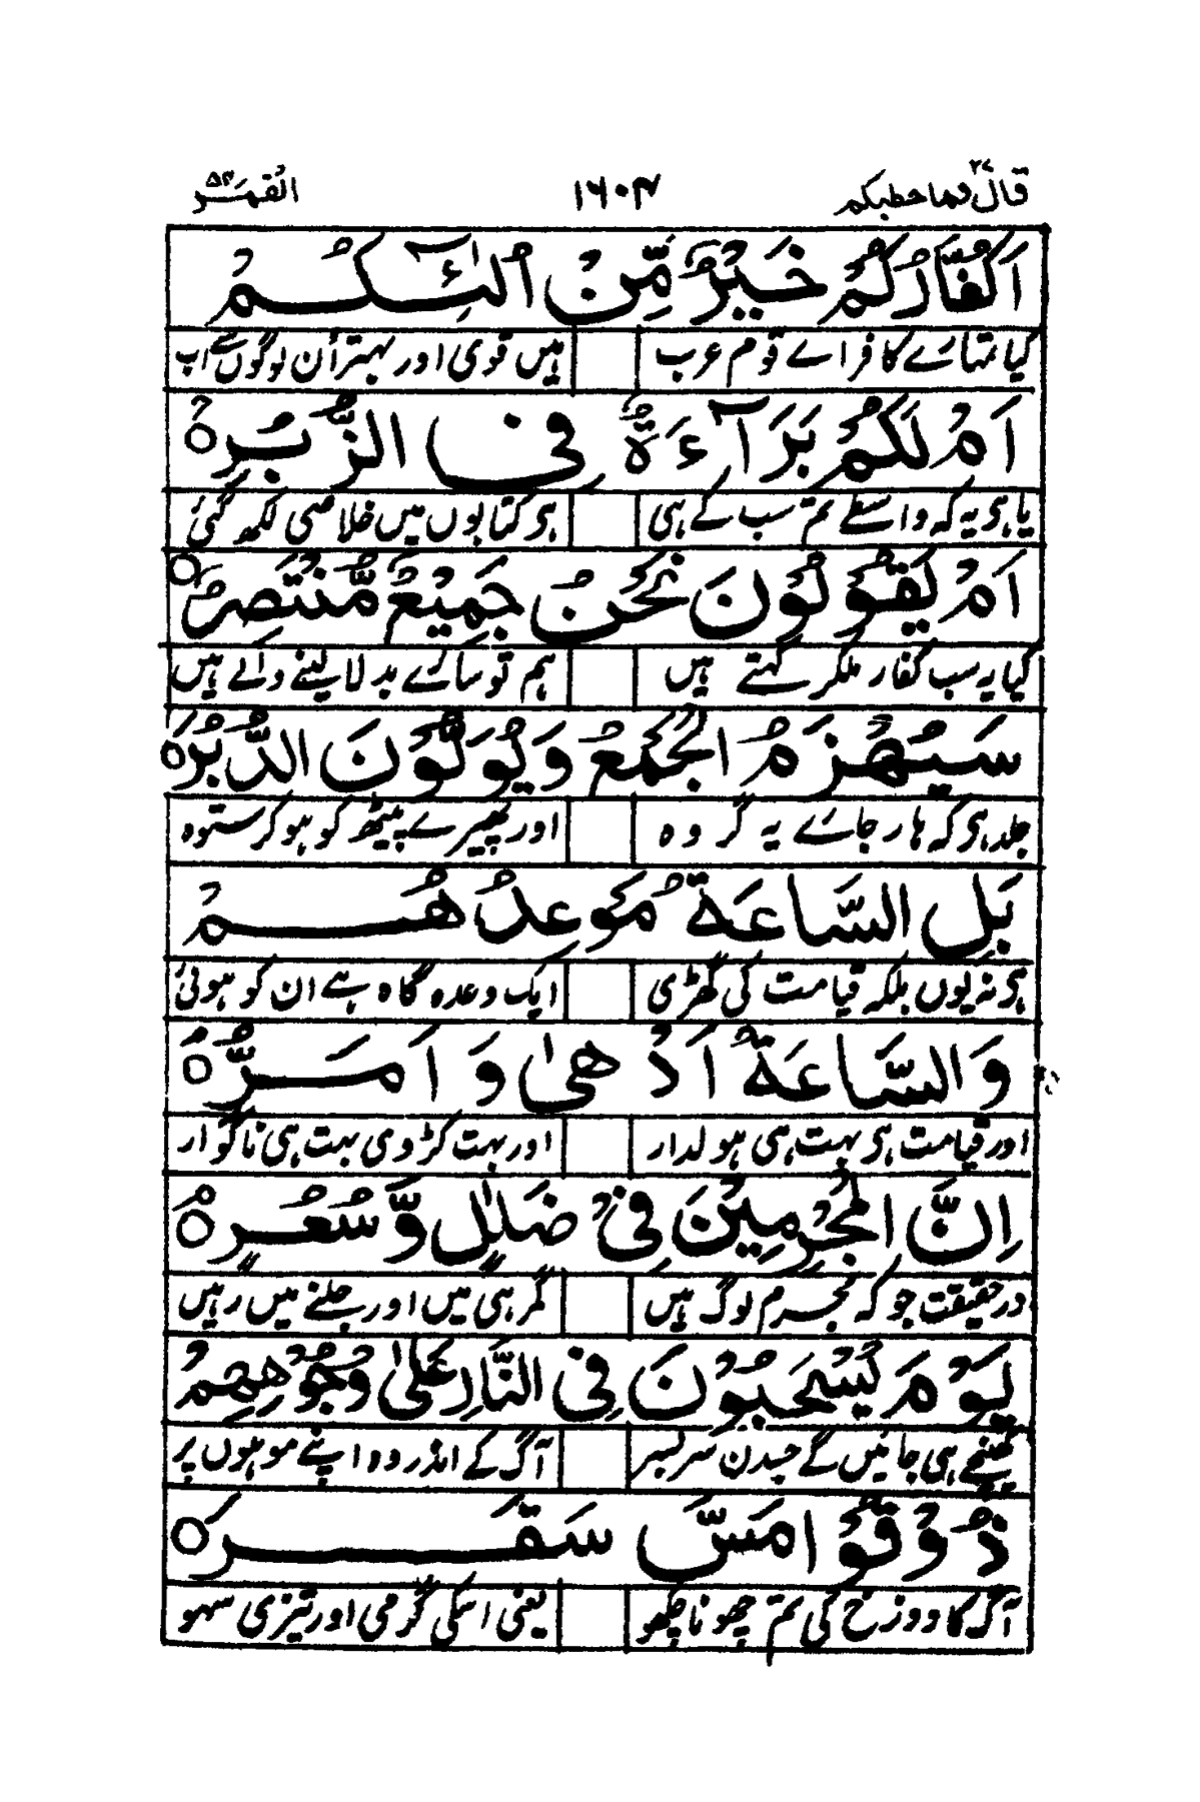 قال فما خطبکم ۲۷ ۱۶۰۴ القمر ۵۴
اَكُفَّارُكُمْ خَيْرٌ مِّنْ اُولٰٓئِكُمْ
کیا تمہارے کافر اے قوم عرب ہیں قوی اور بہتر اُن لوگوں سے اب
اَمْ لَكُمْ بَرَآءَةٌ فِى الزُّبُرِ
یا ہی یہ کہ واسطے تم سب کے ہی ہی کتابوں میں خلاصی لکھ گئی
اَمْ يَقُوْلُوْنَ نَحْنُ جَمِيْعٌ مُّنْتَصِرٌ
کیا یہ سب کفار ملکر کہتے ہیں ہم تو سارے بدلا لینے والے ہیں
سَيُهْزَمُ الْجَمْعُ وَيُوَلُّوْنَ الدُّبُرَ
جلد ہی کہ ہار جاے یہ گروہ اور پھیرے پیٹھ کو ہو کر ستوہ
بَلِ السَّاعَةُ مَوْعِدُهُمْ
ہی نہ یوں بلکہ قیامت کی گھڑی ایک وعدہ گاہ ہے ان کو ہوئی
وَالسَّاعَةُ اَدْهٰى وَاَمَرُّ
اور قیامت ہی بہت ہی ہولدار اور بہت کڑوی بہت ہی ناگوار
اِنَّ الْمُجْرِمِيْنَ فِىْ ضَلٰلٍ وَّسُعُرٍ
در حقیقت جو کہ مجرم لوگ ہیں گمرہی میں اور جلنے میں رہیں
يَوْمَ يُسْحَبُوْنَ فِى النَّارِ عَلٰى وُجُوْهِهِمْ
کھینچے ہی جائیں گے جسدن سر بسر آگ کے اندر وہ اپنے موہوں پر
ذُوْقُوْا مَسَّ سَقَرَ
آگ کا دوزخ کی تم چھونا چکھو یعنی اسکی گرمی اور تیزی سہو